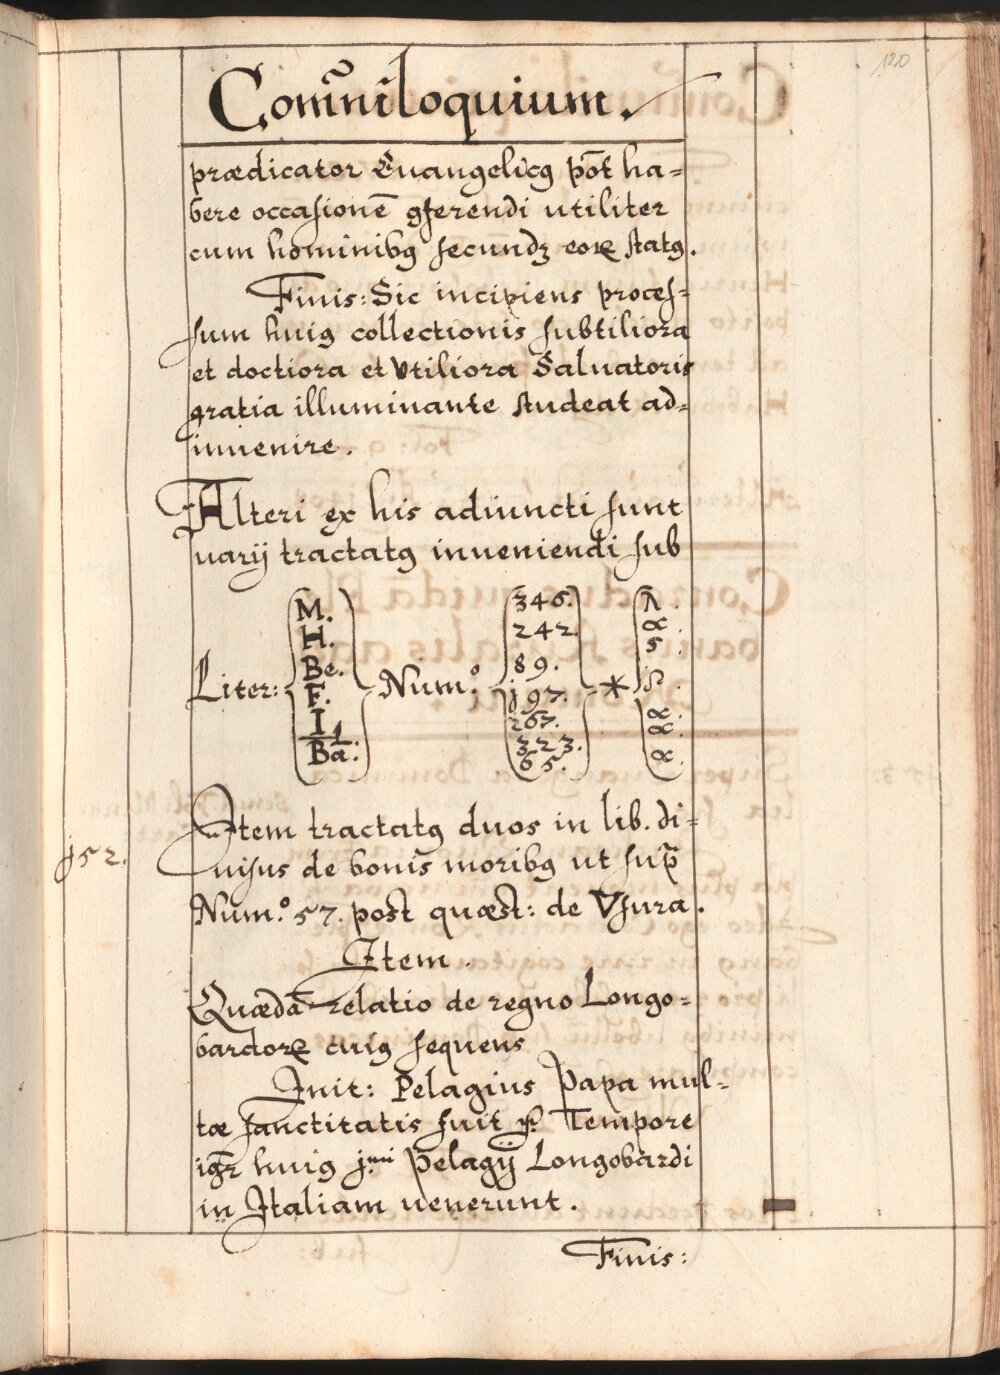 120
Com̃uniloquium.
prædicator Euangelicꝰ põt ha=
bere occasionē ꝯferendi utiliter
cum hominibꝰ secundꝫ eoꝝ statꝰ.
Finis: Sic incipiens proces=
sum huiꝰ collectionis subtiliora
et doctiora et Vtiliora Saluatoris
gratia illuminante studeat ad=
inuenire.
Alteri ex his adiuncti sunt
uarij tractatꝰ inueniendi sub
Liter: M. H. Be. F. I. Ba. Num.º 346. 242. 89. j97. 267. 323. 65. *
Item tractatꝰ duos in lib. di=
j52.
uisus de bonis moribꝰ ut sup̄
Num.º 57. post quæst: de Vsura.
Item.
Quædā relatio de regno Longo=
bardoꝝ cuiꝰ sequens
Init: Pelagius Papa mul=
tæ sanctitatis fuit Tempore
igr̄ huiꝰ Pelagij Longobardi
in Italiam uenerunt.
Finis: